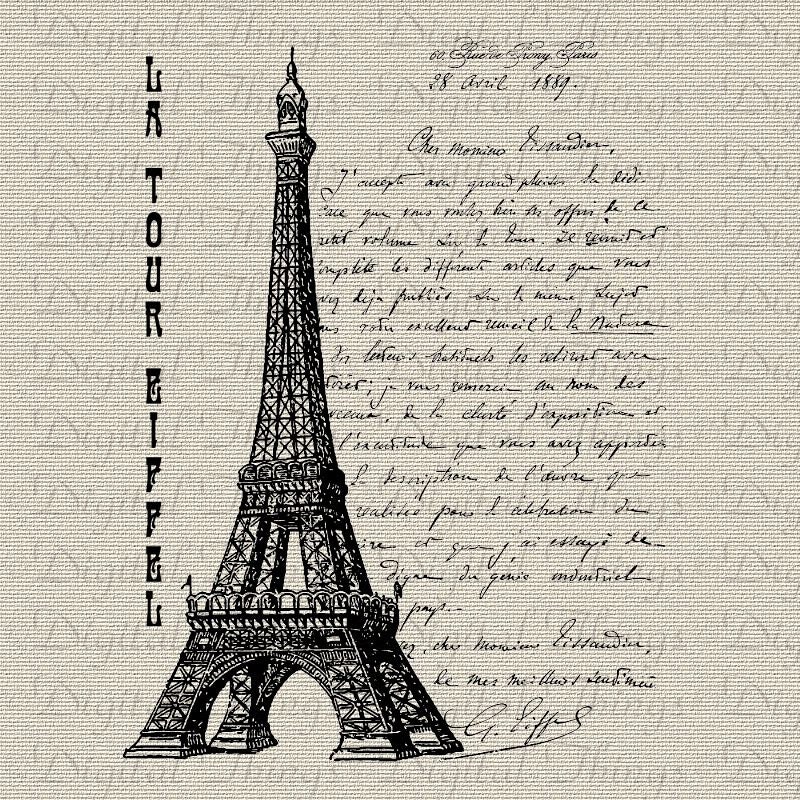 LA TOUR EIFFEL
60, Rue de Prony, Paris
28 Avril 1889.
Cher monsieur Tissandier,
J'accepte avec grand plaisir la dédi-
cace que vous voulez bien m'offrir de ce
petit volume sur la Tour. Il réunit et
complète les différents articles que vous
avez déjà publiés sur le même sujet
votre excellent recueil de la Nature
lecteurs habituels les reliront avec
je vous remercie au nom des
de la clarté d'exposition et
l'exactitude que vous avez apportées
description de l'œuvre que
réalisée pour la célébration du
et que j'ai essayé de
digne du génie industriel
pays.
cher monsieur Tissandier,
de mes meilleurs sentiments
G. Eiffel
Digital Things